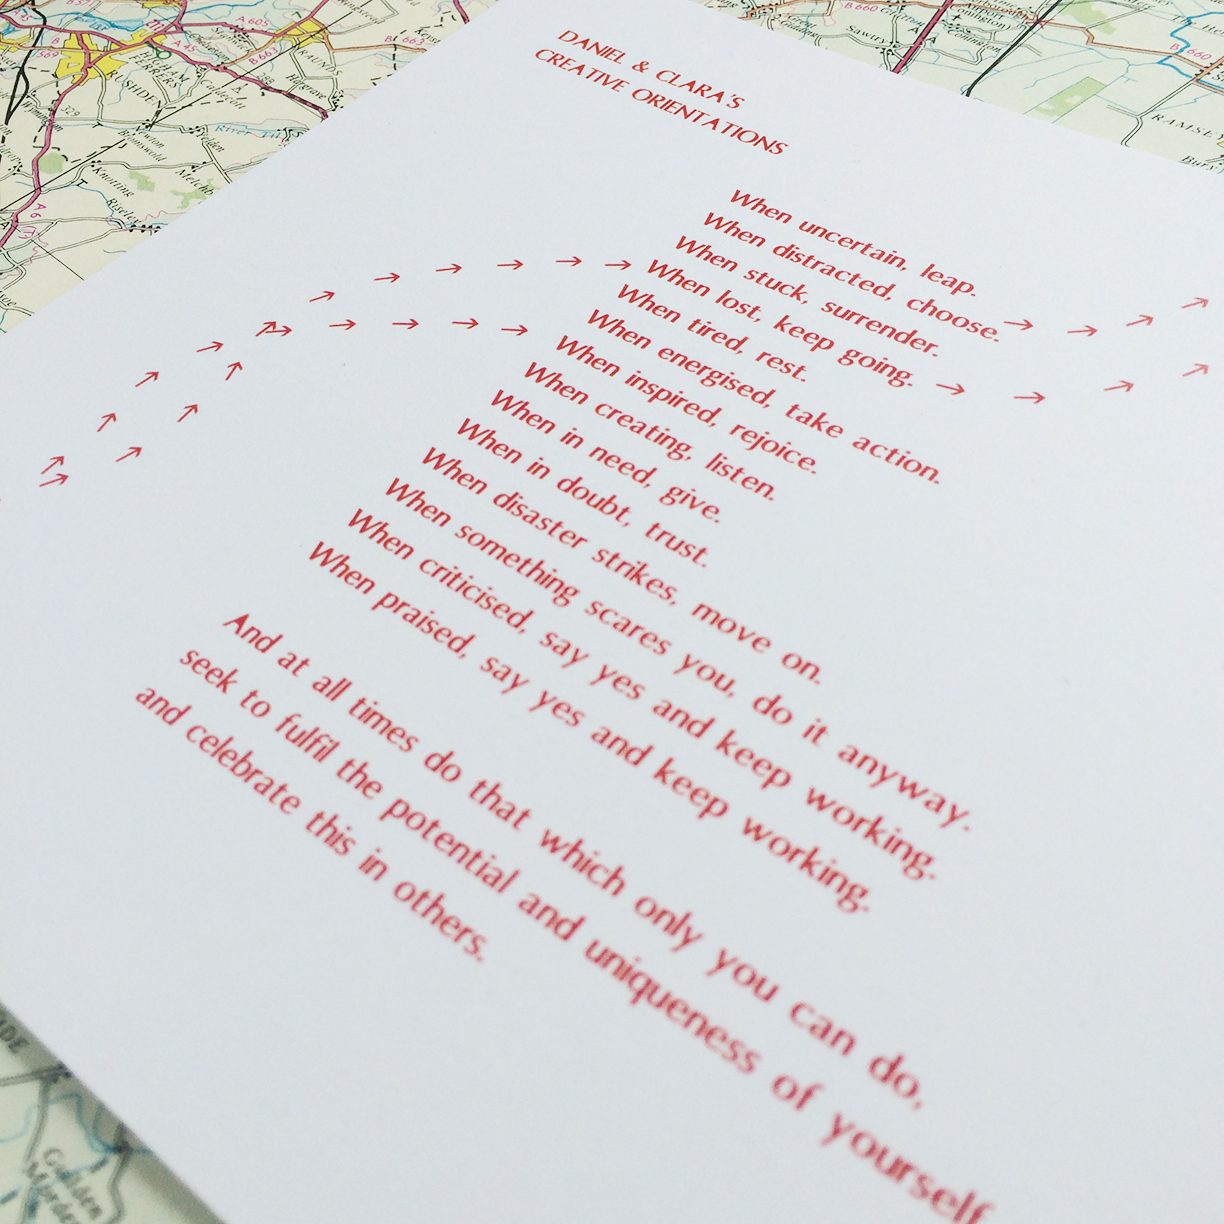 DANIEL & CLARA'S
CREATIVE ORIENTATIONS
When uncertain, leap.
When distracted, choose.
When stuck, surrender.
When lost, keep going.
When tired, rest.
When energised, take action.
When inspired, rejoice.
When creating, listen.
When in need, give.
When in doubt, trust.
When disaster strikes, move on.
When something scares you, do it anyway.
When criticised, say yes and keep working.
When praised, say yes and keep working.
And at all times do that which only you can do,
seek to fulfil the potential and uniqueness of yourself
and celebrate this in others.
A 605
A 45
B 663
B 663
RUSHDEN
Newton
Bromswold
Yelden
River Til
Knotting
Riseley
A 6
B 660
B 660
RAMSEY